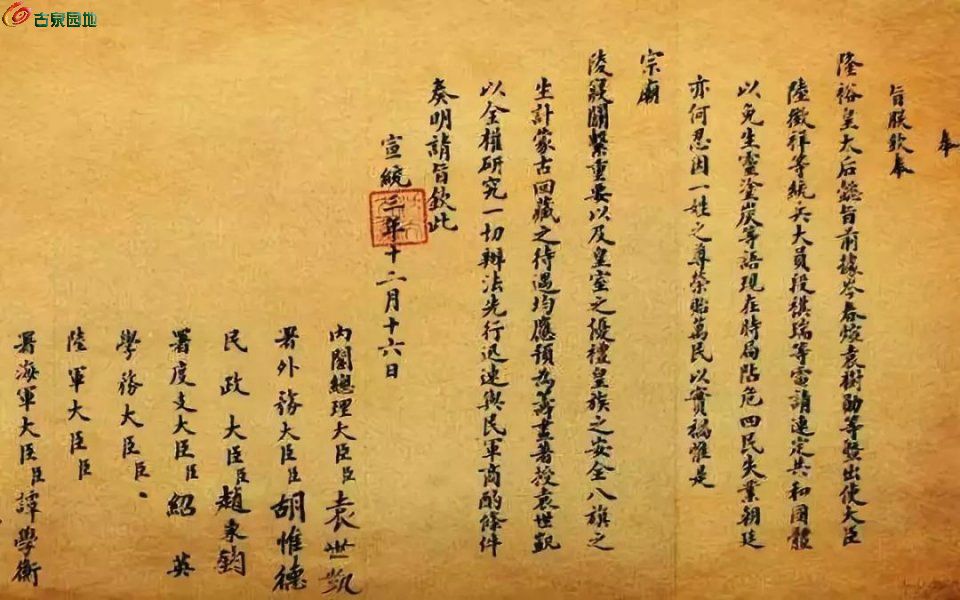 古泉园地
奉
旨朕欽奉
隆裕皇太后懿旨前據岑春煊袁樹勛等暨出使大臣
陸徵祥等統兵大員段祺瑞等電請速定共和國體
以免生靈塗炭等語現在時局阽危四民失業朝廷
亦何忍因一姓之尊榮貽萬民以實禍惟是
宗廟
陵寢關繫重要以及皇室之優禮皇族之安全八旗之
生計蒙古回藏之待遇均應預為籌畫著授袁世凱
以全權研究一切辦法先行迅速與民軍商酌條件
奏明請旨欽此
宣統三年十二月十六日
內閣總理大臣臣袁世凱
署外務大臣臣胡惟德
民政大臣臣趙秉鈞
署度支大臣臣紹英
學務大臣臣
陸軍大臣臣
署海軍大臣臣譚學衡